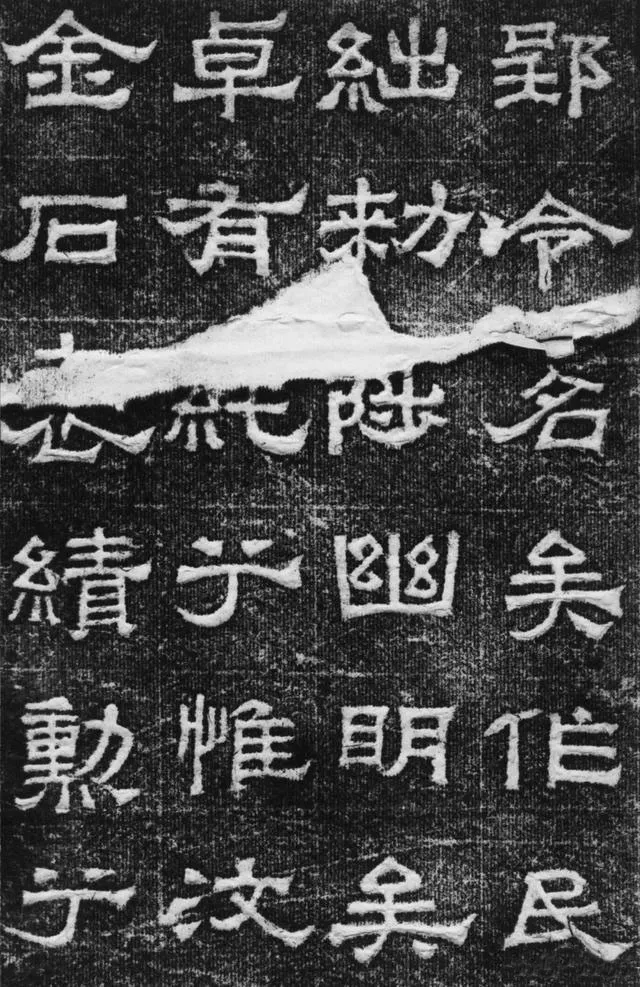 郢令名矣作民
絀勑陟幽明矣
卓有純于惟汶
金石績勳于